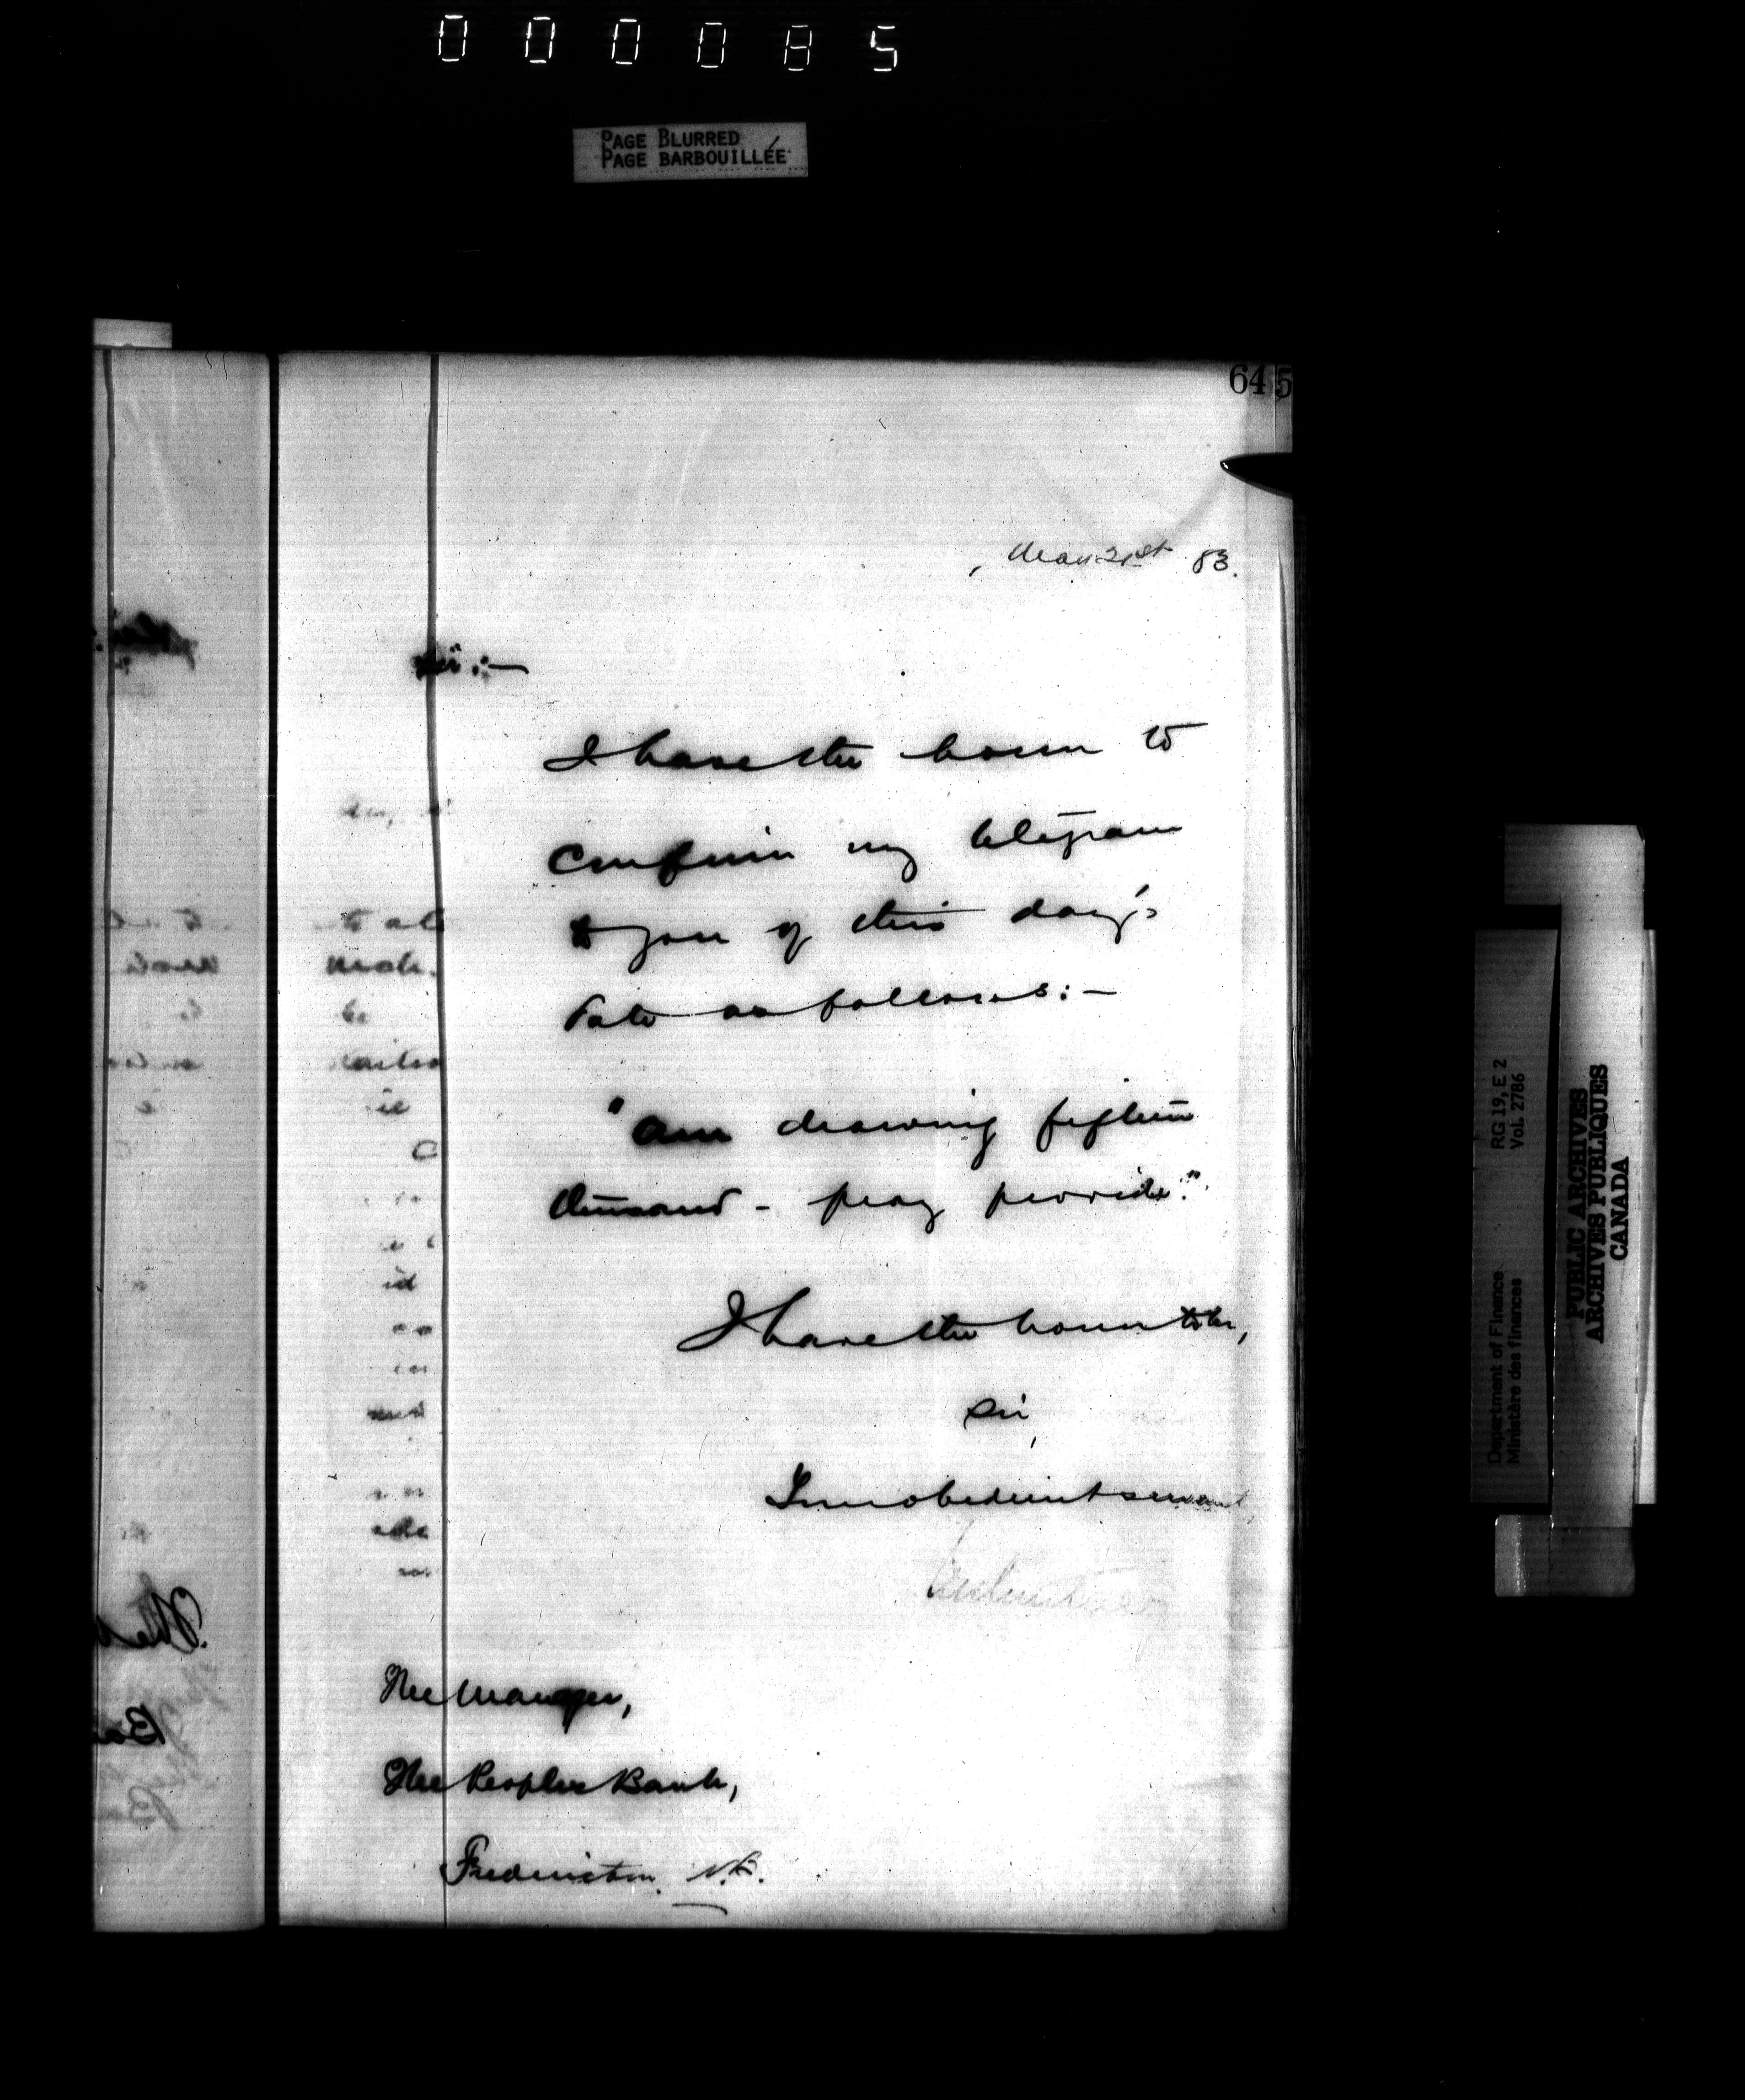 000085
PAGE BLURRED
PAGE BARBOUILLÉE
645
May 21st 83.
Sir :—
I have the honor to
confirm my telegram
to you of this day's
date as follows :—
"Am drawing fifteen
thousand - pray provide."
I have the honor to be,
Sir,
Your obedient servant
The Manager,
The Peoples Bank,
Fredericton. N.B.
Department of Finance
Ministère des finances
RG 19, E 2
Vol. 2786
PUBLIC ARCHIVES
ARCHIVES PUBLIQUES
CANADA